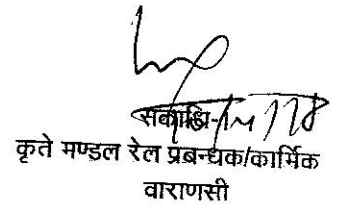 कृते मण्डल रेल प्रबन्धक/कार्मिक
वाराणसी